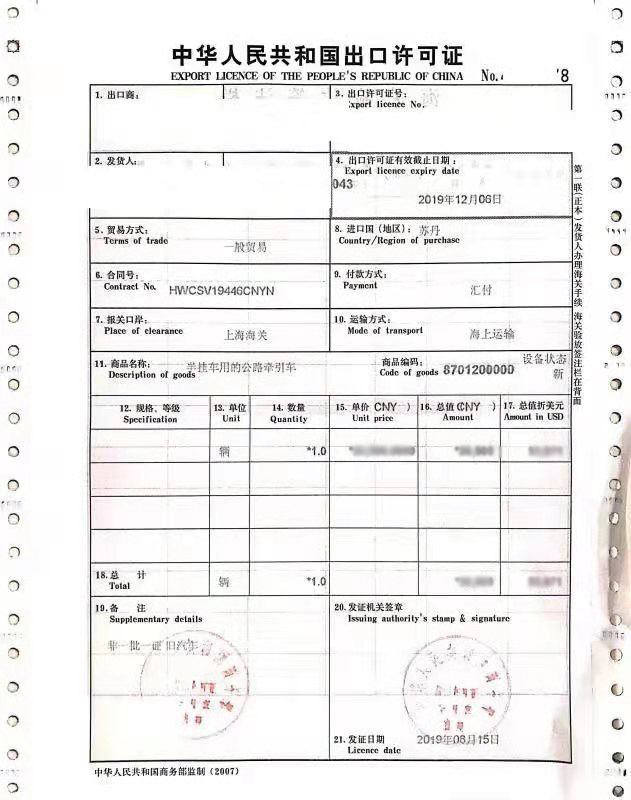 中华人民共和国出口许可证
EXPORT LICENCE OF THE PEOPLE'S REPUBLIC OF CHINA No. '8
1. 出口商：
3. 出口许可证号：
Export licence No.
2. 发货人：
4. 出口许可证有效截止日期：
Export licence expiry date
043
2019年12月06日
5. 贸易方式：
Terms of trade
一般贸易
8. 进口国（地区）：苏丹
Country/Region of purchase
6. 合同号：
Contract No. HWCSV19446CNYN
9. 付款方式：
Payment
汇付
7. 报关口岸：
Place of clearance
上海海关
10. 运输方式：
Mode of transport
海上运输
11. 商品名称：
Description of goods
半挂车用的公路牵引车
商品编码：
Code of goods 8701200000
设备状态
新
12. 规格、等级
Specification
13. 单位
Unit
14. 数量
Quantity
15. 单价（CNY ）
Unit price
16. 总值（CNY ）
Amount
17. 总值折美元
Amount in USD
辆
*1.0
18. 总 计
Total
辆
*1.0
19. 备 注
Supplementary details
非一批一证 旧汽车
20. 发证机关签章
Issuing authority's stamp & signature
21. 发证日期
Licence date
2019年08月15日
中华人民共和国商务部监制（2007）
第一联（正本）发货人办理海关手续 海关验放签注栏在背面